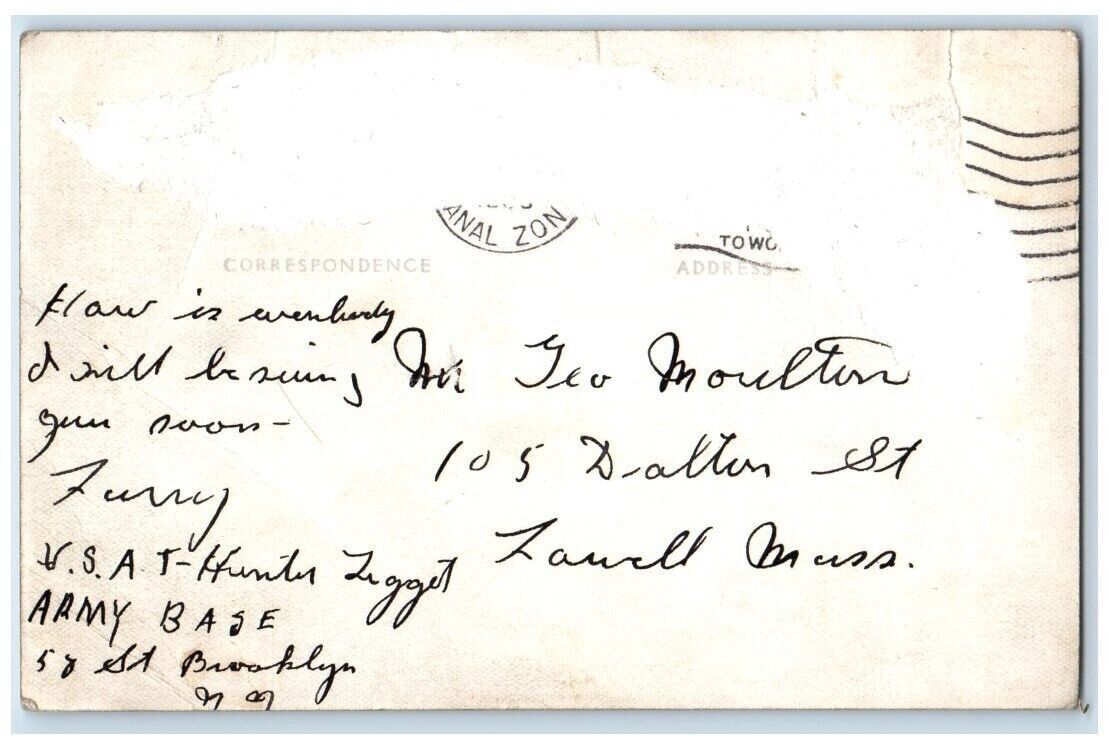 ANAL ZON
TOWO
CORRESPONDENCE
ADDRESS
How is everybody
I will be seeing
you soon -
Larry
U.S.A.T - Hunter Legget
ARMY BASE
58 St Brooklyn
N Y
Mr Geo Moulton
105 Dalton St
Lowell Mass.